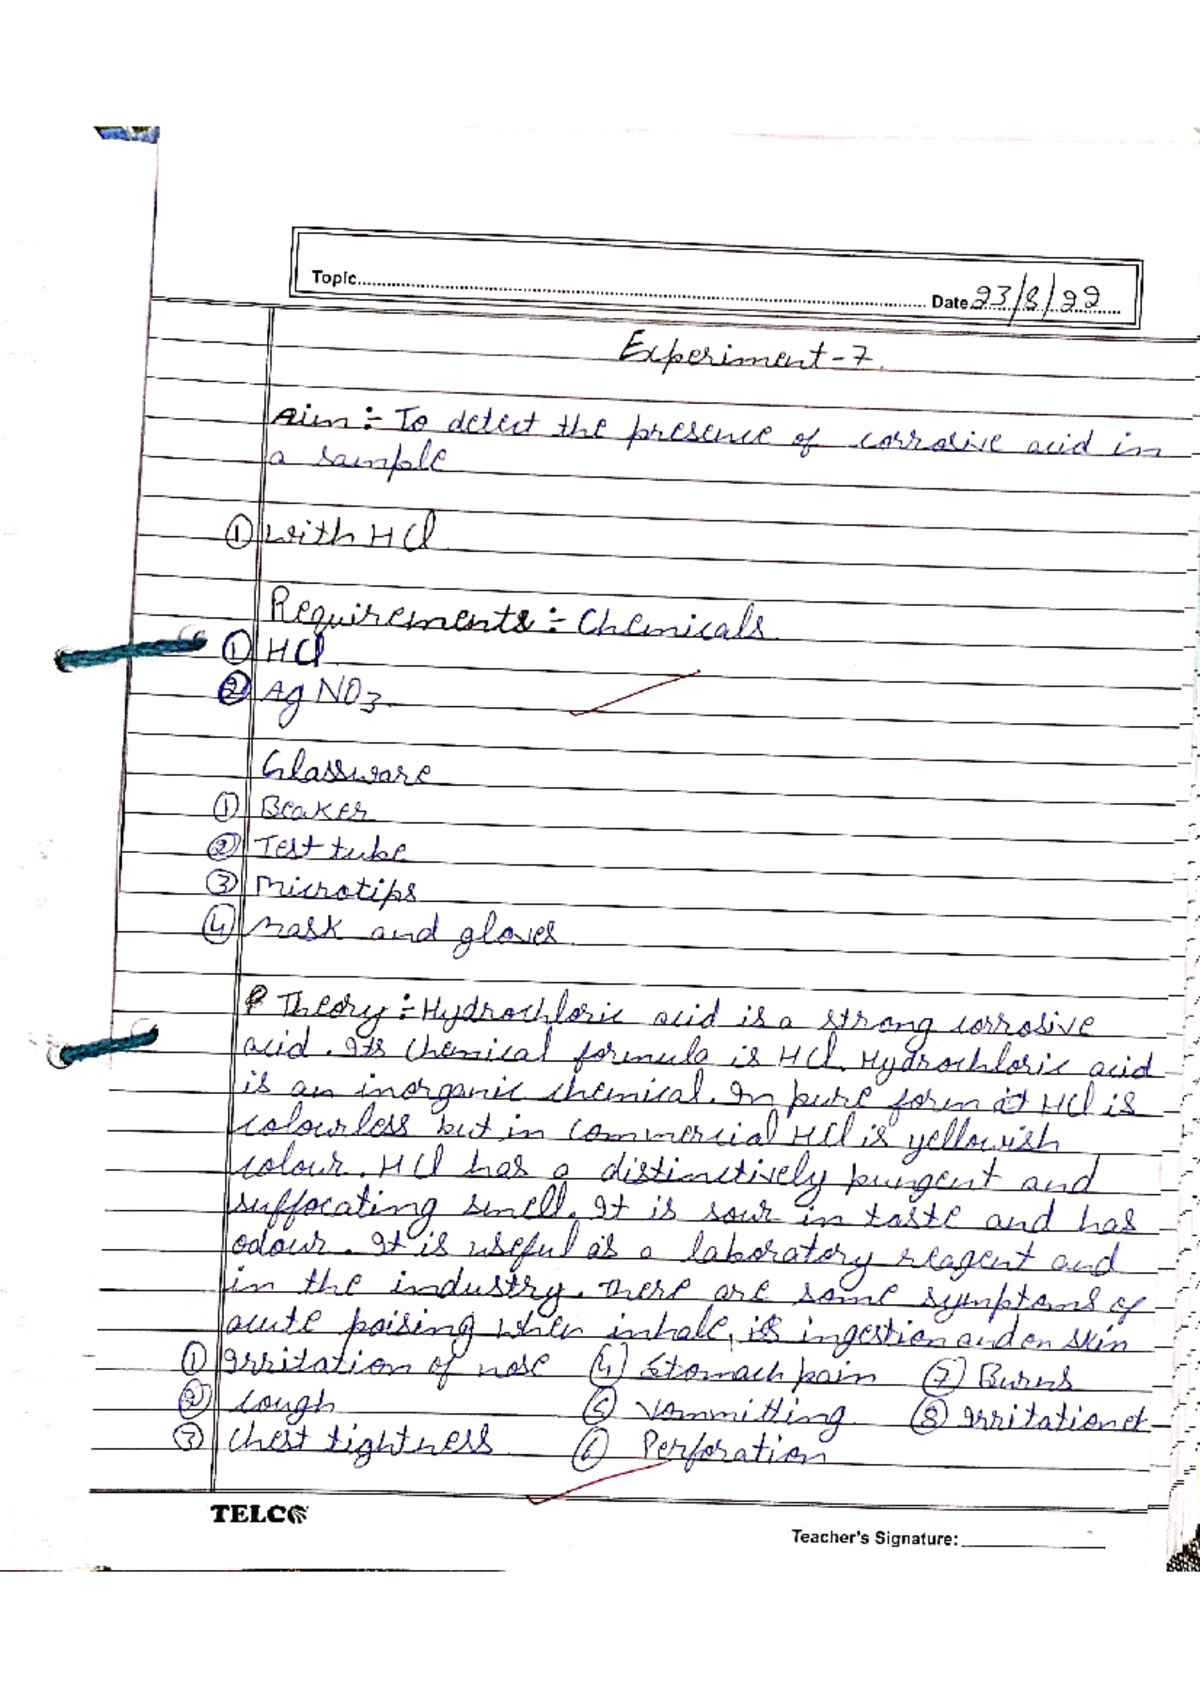 Topic
Date 23/8/22
Experiment-7.
Aim :- To detect the presence of corrosive acid in
a sample
① With HCl
Requirements :- Chemicals
① HCl
② AgNO3.
Glassware
① Beaker
② Test tube
③ Microtips
④ Mask and gloves.
Theory :- Hydrochloric acid is a strong corrosive
acid. Its chemical formula is HCl. Hydrochloric acid
is an inorganic chemical. In pure form it HCl is
colourless but in commercial HCl is yellowish
colour. HCl has a distinctively pungent and
suffocating smell. It is sour in taste and has
odour. It is useful as a laboratory reagent and
in the industry. There are some symptoms of
acute poising when inhale, is ingestion and on skin
① Irritation of nose ④ Stomach pain ⑦ Burns
② Cough ⑤ Vommitting ⑧ Irritation et
③ Chest tightness ⑥ Perforation
TELCO
Teacher's Signature: